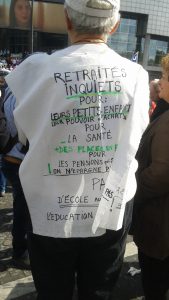 RETRAITÉS
INQUIETS
POUR:
LEURS PETITS ENFANTS
LEUR POUVOIR D'ACHAT
POUR
LA SANTÉ
+ DES PLACES EN
POUR
LES PENSIONS
ON N'ÉPARGNE
PA
D'ÉCOLE
L'EDUCATION